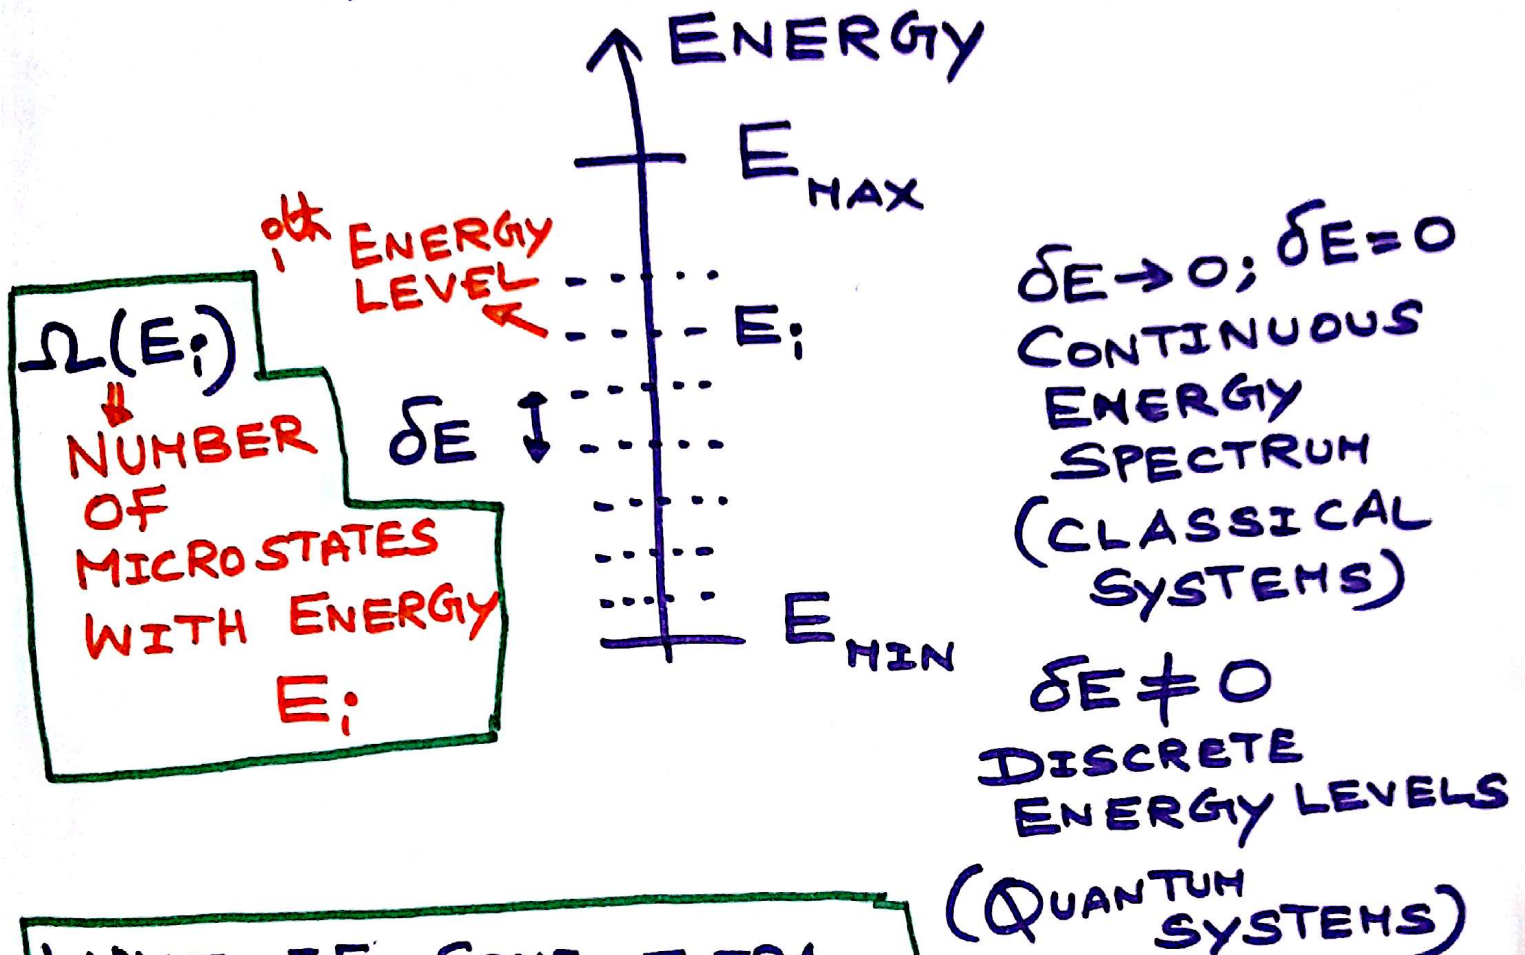 ENERGY
E MAX
ith ENERGY
LEVEL
Ei
δE
E MIN
Ω(Ei)
⇓
NUMBER
OF
MICROSTATES
WITH ENERGY
Ei
δE→0; δE=0
CONTINUOUS
ENERGY
SPECTRUM
(CLASSICAL
SYSTEMS)
δE≠0
DISCRETE
ENERGY LEVELS
(QUANTUM
SYSTEMS)